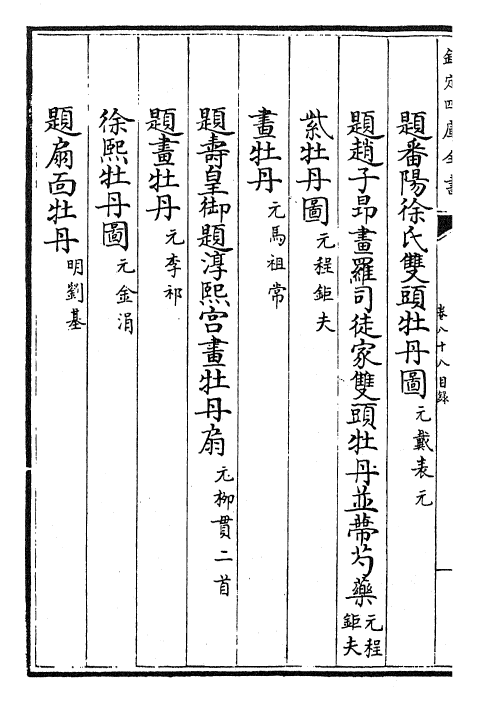 欽定四庫全書
卷八十八目録
題番陽徐氏雙頭牡丹圖元戴表元
題趙子昻畫羅司徒家雙頭牡丹並蔕芍藥元程鉅夫
紫牡丹圖元程鉅夫
畫牡丹元馬祖常
題壽皇御題淳熙宮畫牡丹扇元柳貫二首
題畫牡丹元李祁
徐熙牡丹圖元金涓
題扇面牡丹明劉基